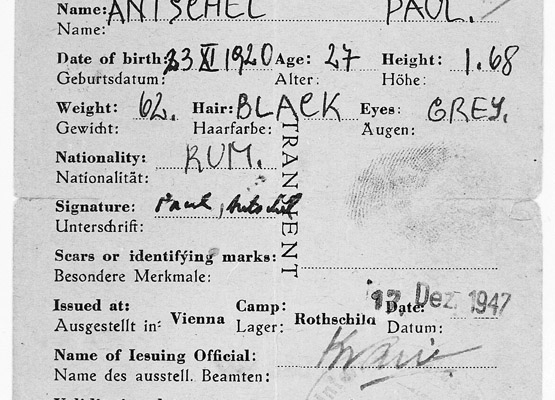 Name: ANTSCHEL PAUL.
Name:
Date of birth: 23 XI 1920 Age: 27 Height: 1.68
Geburtsdatum: Alter: Höhe:
Weight: 62. Hair: BLACK Eyes: GREY.
Gewicht: Haarfarbe: Augen:
Nationality: RUM.
Nationalität:
TRANSIENT
Signature: Paul Antschel
Unterschrift:
Scars or identifying marks:
Besondere Merkmale:
Issued at: Vienna Camp: Rothschild Date: 17 Dez. 1947
Ausgestellt in: Lager: Datum:
Name of Iesuing Official:
Name des ausstell. Beamten: